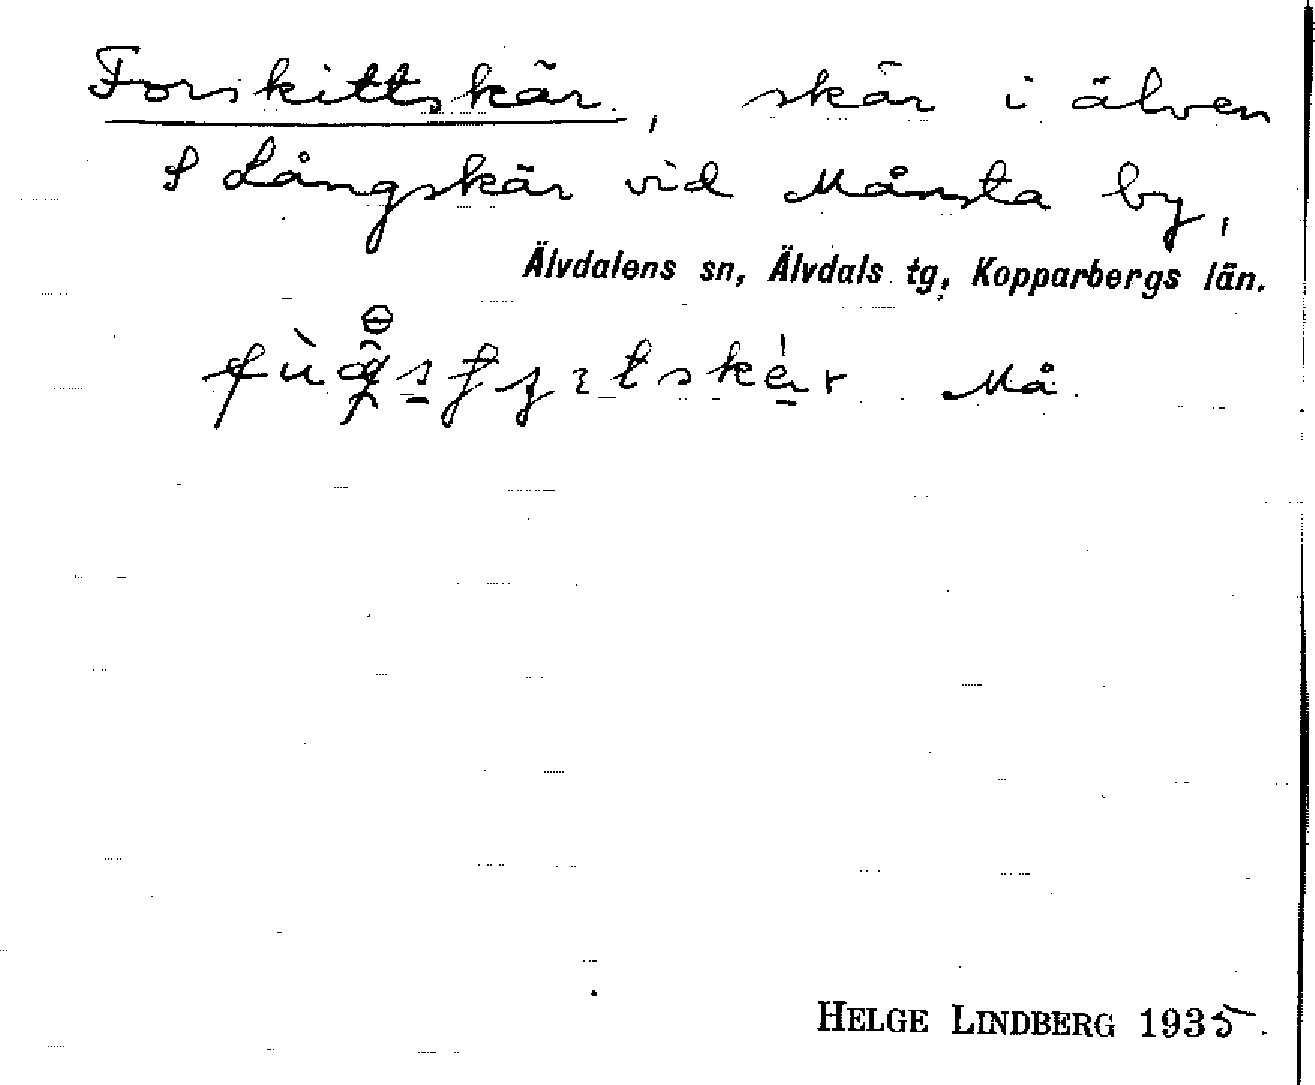 Forskittskär, skär i älven
S Långskär vid Månsta by,
Älvdalens sn, Älvdals tg, Kopparbergs län.
Må
HELGE LINDBERG 1935.